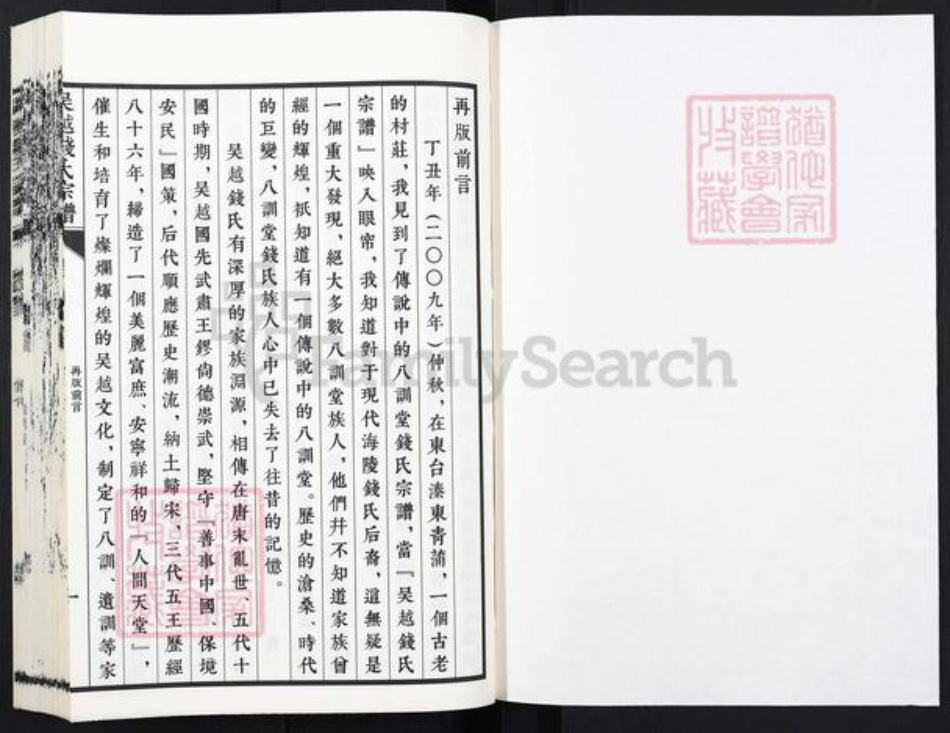 猶他家
譜學會
收藏
再版前言
丁丑年(二〇〇九年)仲秋,在東台溱東青蒲,一個古老
的村莊,我見到了傳說中的八訓堂錢氏宗譜,當『吴越錢氏
宗譜』映入眼帘,我知道對于現代海陵錢氏后裔,這無疑是
一個重大發現,絕大多數八訓堂族人,他們并不知道家族曾
經的輝煌,祇知道有一個傳說中的八訓堂。歷史的滄桑、時代
的巨變,八訓堂錢氏族人心中已失去了往昔的記憶。
吴越錢氏有深厚的家族淵源,相傳在唐末亂世、五代十
國時期,吴越國先武肅王鏐尚德崇武,堅守『善事中國、保境
安民』國策,后代順應歷史潮流,納土歸宋,三代五王歷經
八十六年,締造了一個美麗富庶、安寧祥和的『人間天堂』,
催生和培育了燦爛輝煌的吴越文化,制定了八訓、遺訓等家
吴越錢氏宗譜
再版前言
一
FamilySearch